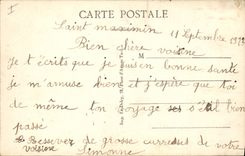 I
CARTE POSTALE
Saint maximin 11 Septembre
Bien chère voisine
Je t'écrit que je suis en bonne santé
je m'amuse bien et j'espère que toi
de même ton voyage ses t'il bien
passé
Recever de grosse carresses de votre
voisine Simonne